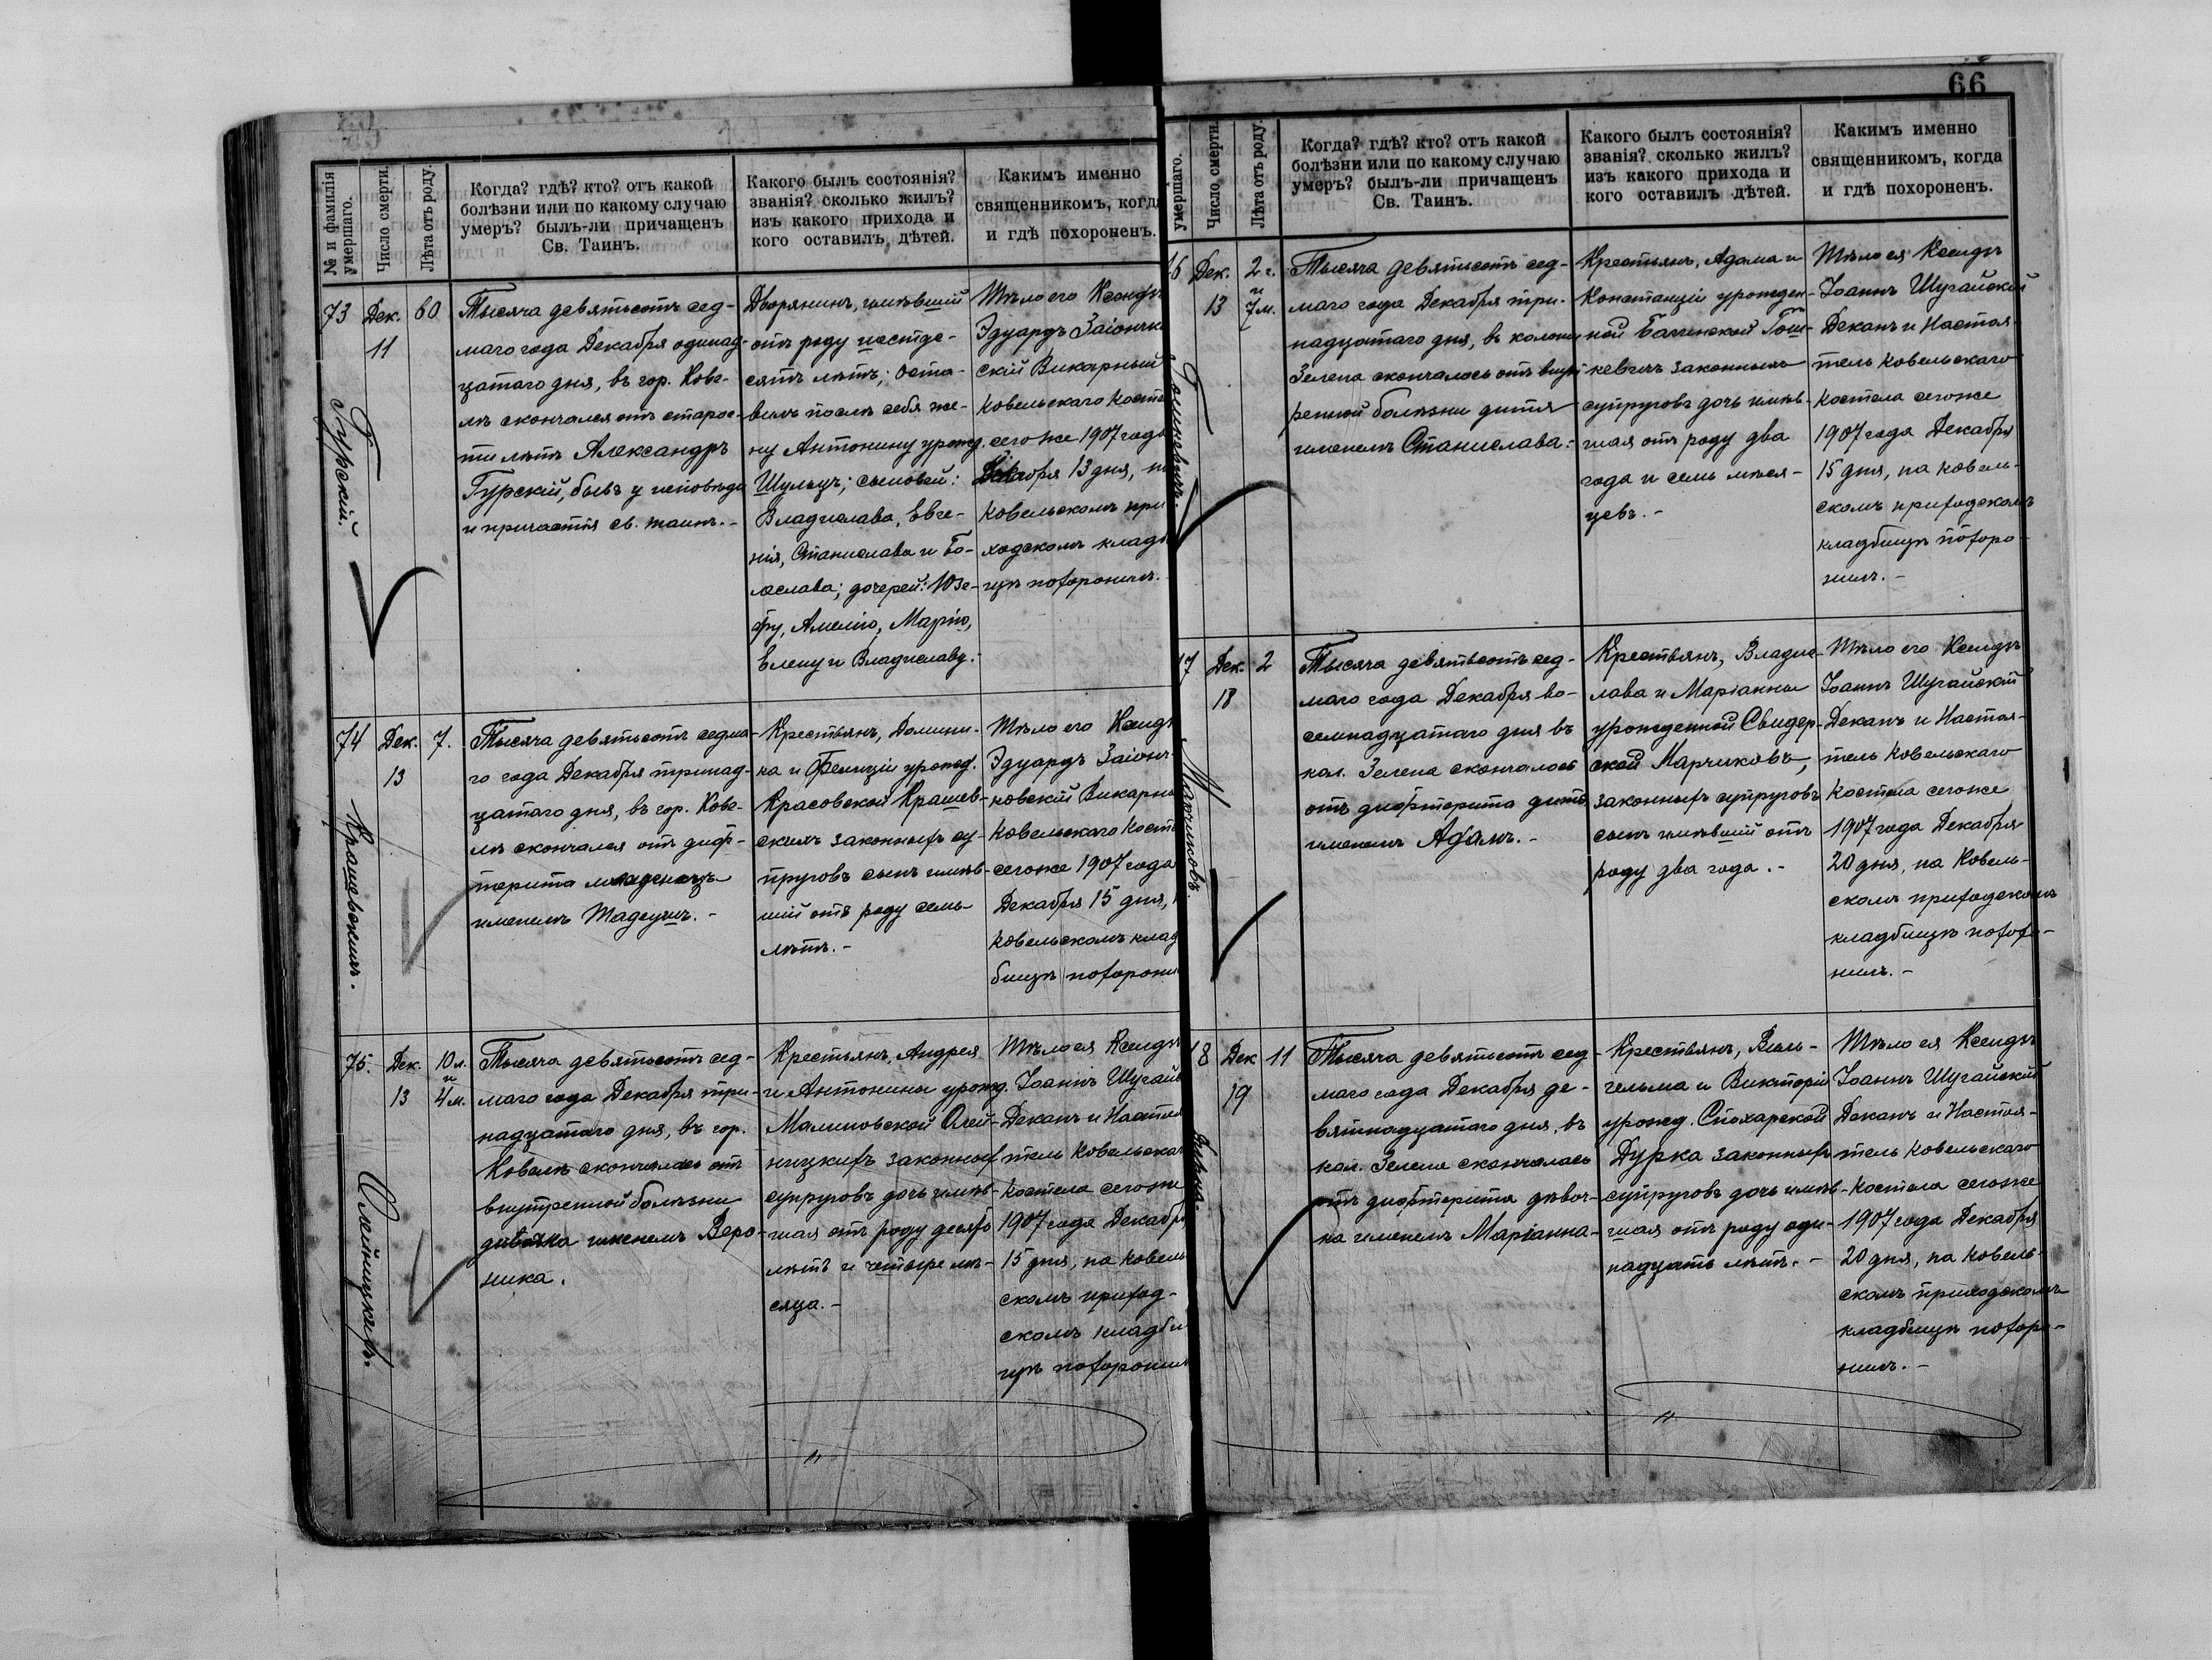 66
№ и фамилія умершаго.
Число смерти.
Лѣта отъ роду.
Когда? гдѣ? кто? отъ какой
болѣзни или по какому случаю
умеръ? былъ-ли причащенъ
Св. Таинъ.
Какого былъ состоянія?
званія? сколько жилъ?
изъ какого прихода и
кого оставилъ дѣтей.
Каким именно
священникомъ, когда
и гдѣ похороненъ.
73
Гурскій.
Дек.
11
60
Тысяча девятьсотъ сед-
маго года Декабря одинад-
цатаго дня, въ гор. Кове-
лѣ скончался отъ старос-
ти лѣтъ Александръ
Гурскій, бывъ у исповѣди
и причастія св. таинъ.-
Дворянинъ, имѣвшій
отъ роду шестде-
сятъ лѣтъ; оста-
вилъ послѣ себя же-
ну Антонину урожд.
Шульцъ; сыновей:
Владислава, Евге-
нія, Станислава и Бо-
леслава; дочерей: Юзе-
фу, Амелію, Марію,
Елену и Владиславу.-
Тѣло его Ксендзъ
Эдуардъ Заіончков
скій Викарный
Ковельскаго Косте
сегоже 1907 года
Декабря 13 дня, на
Ковельскомъ при
ходскомъ кладб
щѣ похоронилъ.-
74
Крашевскихъ.
Дек.
13
7.
Тысяча девятьсотъ седма-
го года Декабря тринад-
цатаго дня, въ гор. Кове-
лѣ скончался отъ диф-
терита младенецъ
именемъ Тадеушъ.-
Крестьянъ, Домини-
ка и Фелиціи урожд.
Красовской Крашев-
скихъ законныхъ су-
пруговъ сынъ имѣв-
шій отъ роду семь
лѣтъ.-
Тѣло его Ксендзъ
Эдуардъ Заіонч-
ковскій Викарны
Ковельскаго Косте
сегоже 1907 года
Декабря 15 дня,
Ковельскомъ клад
бищѣ похорони
75.
Олейницкихъ.
Дек.
13
10 л.
и
4 м.
Тысяча девятьсотъ сед-
маго года Декабря три-
надцатаго дня, въ гор.
Ковелѣ скончалась отъ
внутренной болѣзни
дѣвочка именемъ Веро-
ника.
Крестьянъ, Андрея
и Антонины урожд.
Малиновской Олей-
ницкихъ законныхъ
супруговъ дочь имѣв-
шая отъ роду десять
лѣтъ и четыре мѣ-
сяца.-
Тѣло ея Ксендзъ
Іоаннъ Шугайс
Деканъ и Настоя
тель Ковельскаг
Костела сегоже
1907 года Декабря
15 дня, на Ковель
скомъ приход-
скомъ кладби
щѣ похоронил
умершаго.
Число смерти.
Лѣта отъ роду.
Когда? гдѣ? кто? отъ какой
болѣзни или по какому случаю
умеръ? былъ-ли причащенъ
Св. Таинъ.
Какого былъ состоянія?
званія? сколько жилъ?
изъ какого прихода и
кого оставилъ дѣтей.
Каким именно
священникомъ, когда
и гдѣ похороненъ.
6
Дек.
13
2 г.
и
7 м.
Тысяча девятьсотъ сед-
маго года Декабря три-
надцатаго дня, въ колони
Зелена скончалось отъ внут
ренной болѣзни дитя
именемъ Станислава.-
Крестьянъ, Адама и
Констанціи урожден-
ной
законныхъ
супруговъ дочь имѣв-
шая отъ роду два
года и семь мѣся-
цевъ.-
Тѣло ея Ксендзъ
Іоаннъ Шугайскій
Деканъ и Настоя-
тель Ковельскаго
Костела сегоже
1907 года Декабря
15 дня, на Ковель-
скомъ приходскомъ
кладбищѣ похоро-
нилъ.-
7
Марчиковъ.
Дек.
18
2
Тысяча девятьсотъ сед-
маго года Декабря во-
семнадцатаго дня въ
кол. Зелена скончалось
отъ дифтерита дитя
именемъ Адамъ.-
Крестьянъ, Владис-
лава и Маріанны
урожденной Свидер-
ской Марчиковъ,
законныхъ супруговъ
сынъ имѣвшій отъ
роду два года.-
Тѣло его Ксендзъ
Іоаннъ Шугайскій
Деканъ и Настоя-
тель Ковельскаго
Костела сегоже
1907 года Декабря
20 дня, на Ковель-
скомъ приходскомъ
кладбищѣ похоро-
нилъ.-
8
Дурка.
Дек
19
11
Тысяча девятьсотъ сед-
маго года Декабря де-
вятнадцатаго дня, въ
кол. Зелена скончалась
отъ дифтерита дѣвоч-
ка именемъ Маріанна-
Крестьянъ, Виль-
гельма и Викторіи
урожд. Столарской
Дурка законныхъ
супруговъ дочь имѣв-
шая отъ роду оди-
надцать лѣтъ.-
Тѣло ея Ксендзъ
Іоаннъ Шугайскій
Деканъ и Настоя-
тель Ковельскаго
Костела сегоже
1907 года Декабря
20 дня, на Ковель-
скомъ приходскомъ
кладбищѣ похоро-
нилъ.-